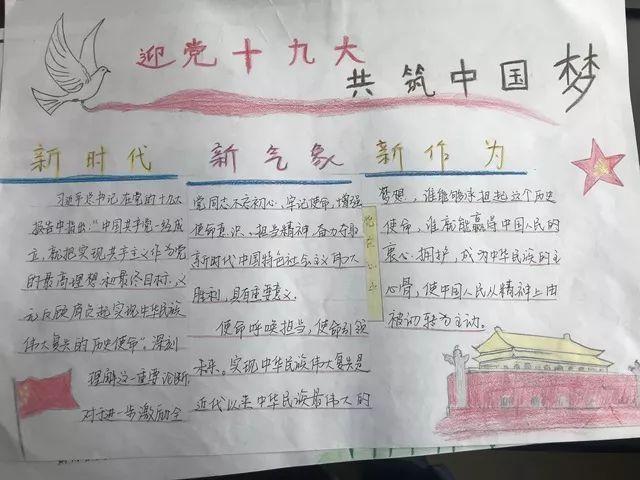 迎党十九大
共筑中国梦
新时代
习近平总书记在党的十九大
报告中指出:“中国共产党一经成
立,就把实现共产主义作为党
的最高理想和最终目标,义
无反顾肩负起实现中华民族
伟大复兴的历史使命”。深刻
理解这一重要论断
对于进一步激励全
新气象
党同志不忘初心、牢记使命,增强
使命意识、担当精神,奋力夺取
新时代中国特色社会主义伟大
胜利,具有重要意义。
使命呼唤担当,使命引领
未来。实现中华民族伟大复兴是
近代以来中华民族最伟大的
新作为
梦想,谁能够承担起这个历史
使命,谁就能赢得中国人民的
衷心拥护,成为中华民族的主
心骨,使中国人民从精神上由
被动转为主动。
党在心中